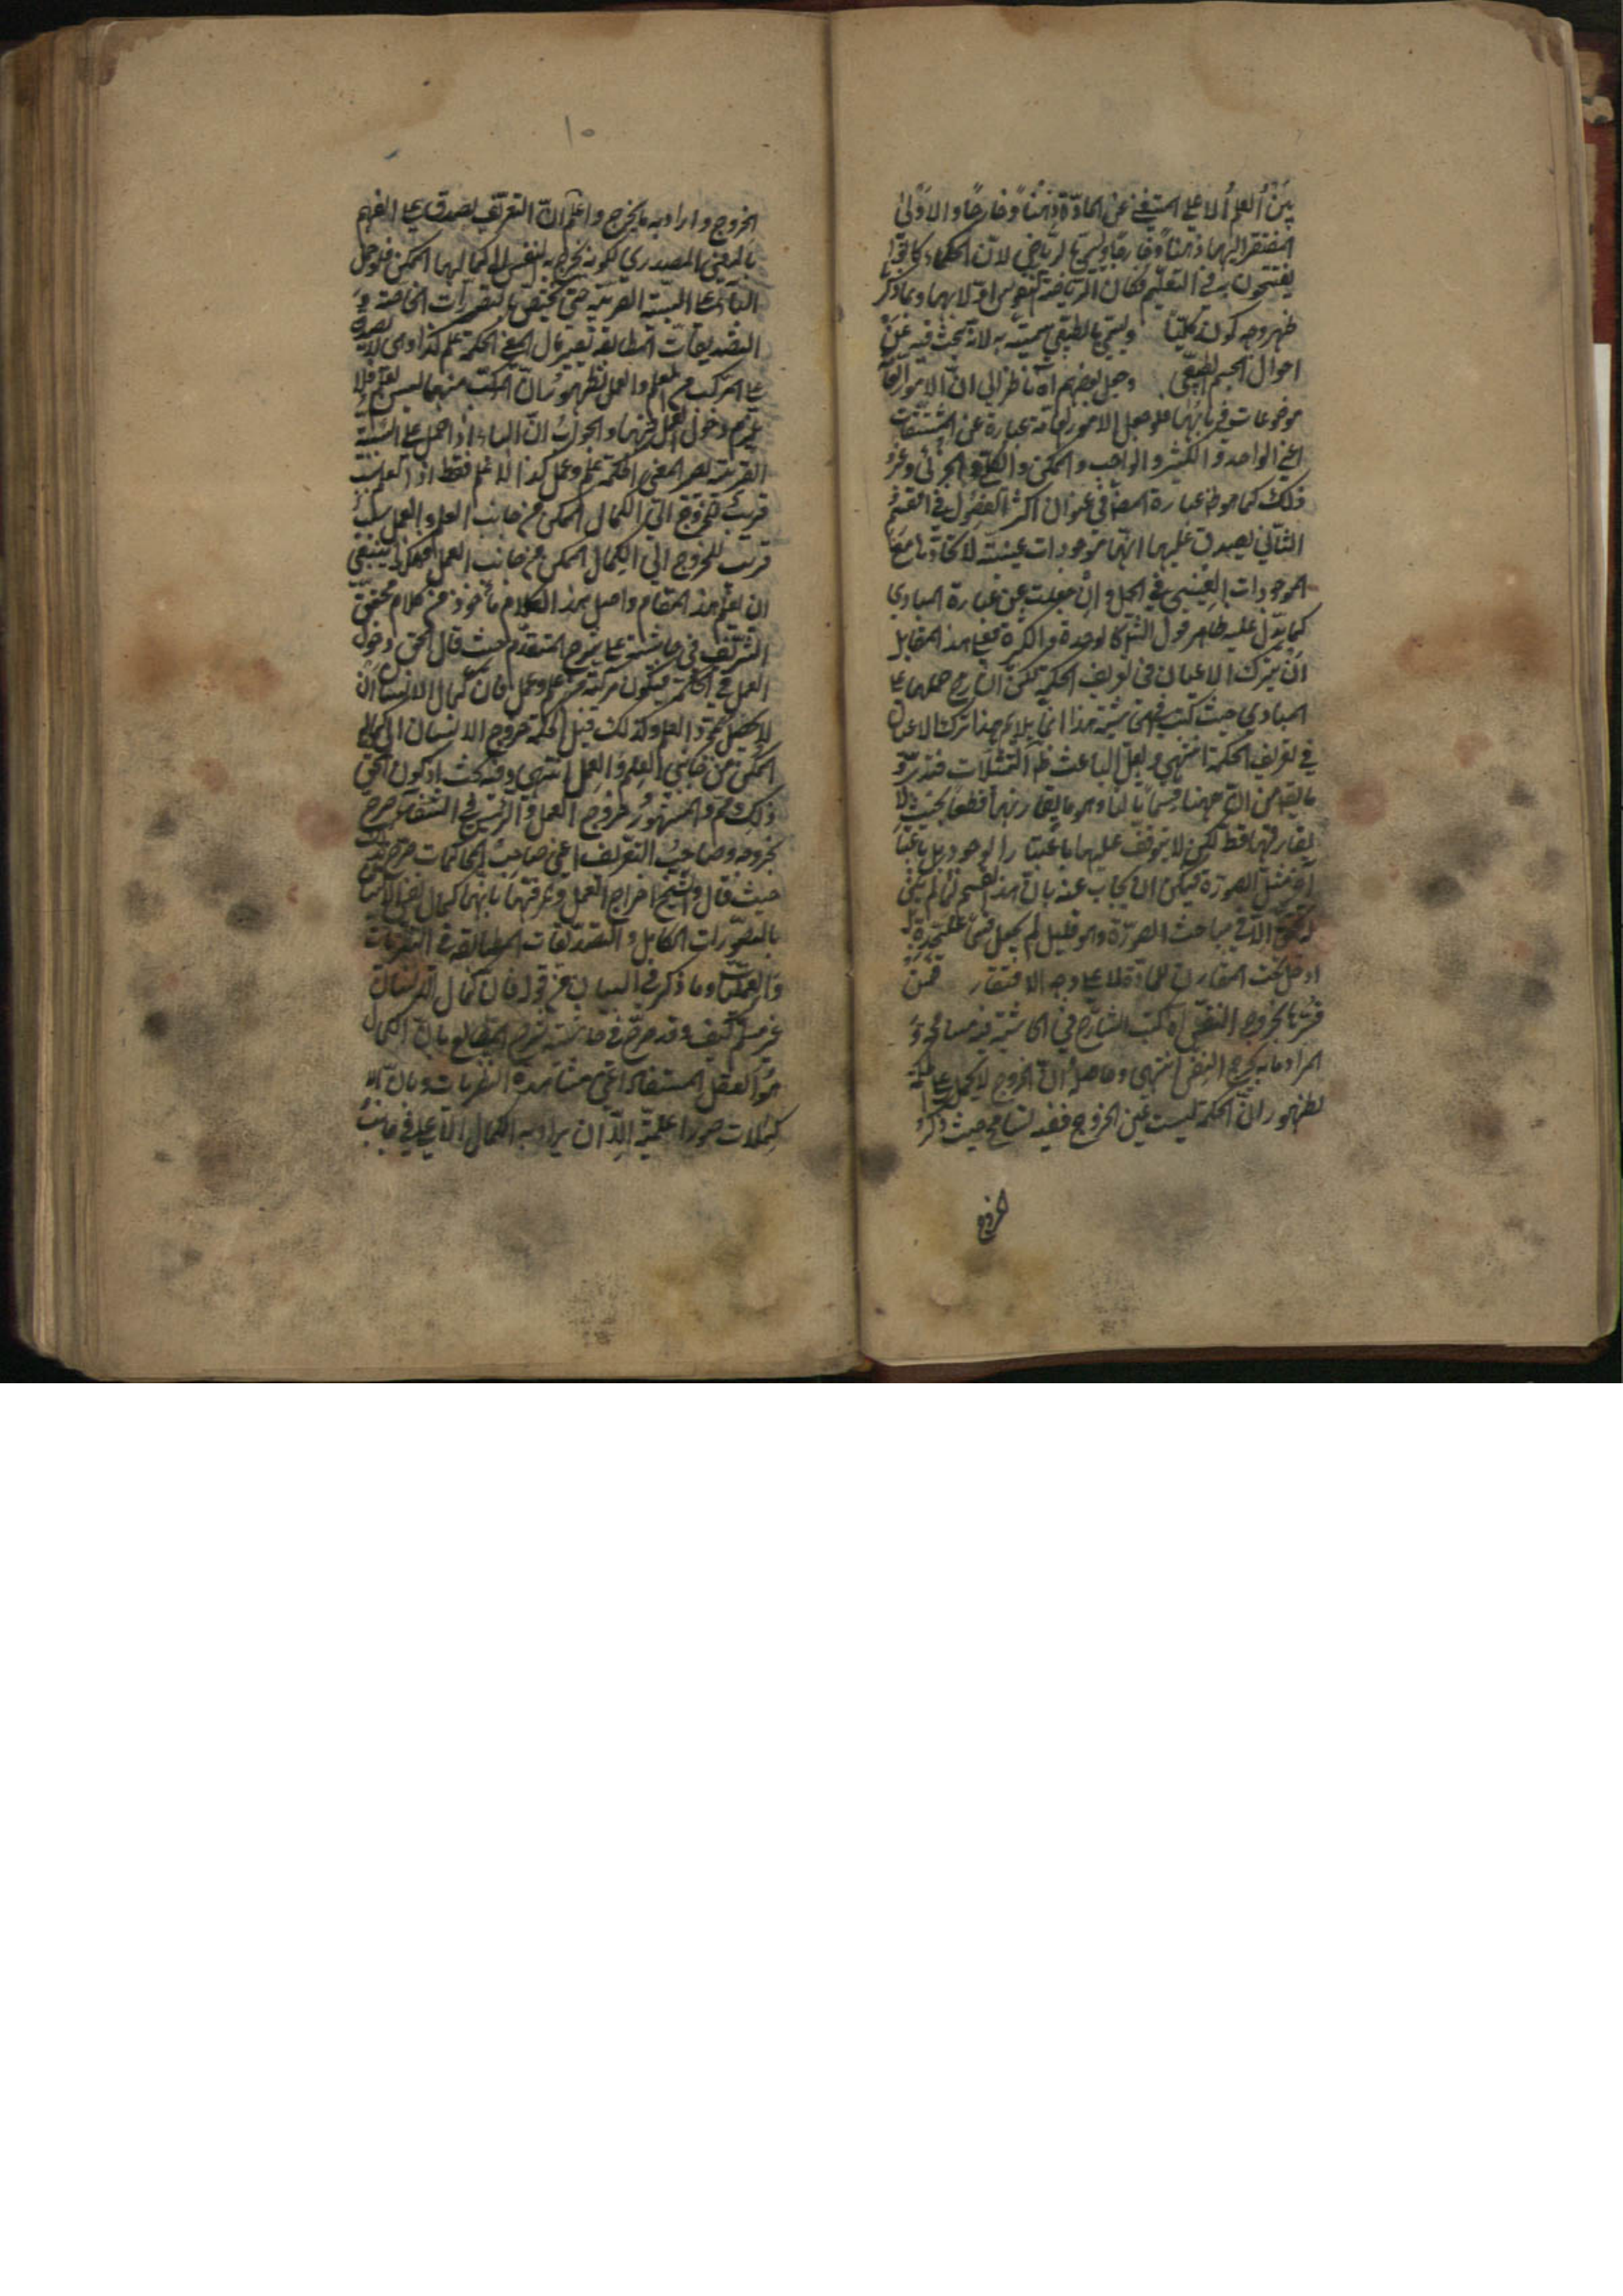 بين العلم الاعلى المستغني عن المادة ذهنا وخارجا والادنى
المفتقر اليها ذهنا وخارجا ويسمى بالرياضي لان الحكماء كانوا
يفتتحون به في التعليم فكان الرياضة لنفوسهم اولا بها وبما ذكر
ظهر وجه كونه كليا ويسمى بالطبيعي سميت به لانه يبحث فيه عن
احوال الجسم الطبيعي وجعل بعضهم اه ناظر الى ان الامور العامة
موضوعات في بابها فلو جعل الامور العامة عبارة عن المشتقات
اعني الواحد والكثير والواجب والممكن والكلي والجزئي وغير
ذلك كما هو ظ عبارة المص في عنوان اكثر الفصول في القسم
الثاني يصدق عليها انها موجودات عينية لاتحادها مع
الموجودات العينية في الحمل وان جعلت عين عبارة المبادي
كما يدل عليه ظاهر قول الش كالوحدة والكثرة فعلى هذا المقابل
ان يترك الاعيان في تعريف الحكمة لكن الش رجح حملها على
المبادي حيث كتب في الحاشية هذا انما يلايم هنا ترك الاعيان
في تعريف الحكمة انتهى ولعل الباعث ظ التمثيلات فتدبر و
ما يق من ان ههنا قسما ثالثا وهو ما يقارنها قطعا بحيث لا
يفارقها قط لكن لا يتوقف عليها باعتبار الوجود بل باعتبار
اخر مثل الصورة فيمكن ان يجاب عنه بان هذا القسم لما لم يكن
له تحقق الا في مباحث الصورة وهو قليل لم يجعل قسما على حدة بل
ادخل تحت المقارن للمادة لا على وجه الافتقار فمن
فسرها بخروج النفس اه كتب الشارح في الحاشية فيه مسامحة و
المراد ما به يخرج النفس انتهى وحاصله ان الخروج لا يحمل على الحكمة
لظهور ان الحكمة ليست عين الخروج ففيه تسامح حيث ذكر
الخروج
١٥
الخروج واراد به ما يخرج واعلم ان التعريف يصدق على الفهم
بالمعنى المصدري لكونه يخرج به النفس الى كمالها الممكن فلو حمل
الباء على السببية القريبة حتى يختص بالتصورات الخاصة و
التصديقات المطابقة تعين فان قيل الحكمة علم كذا وهي لا يصدق
على المركب من العلم والعمل لظهور ان المركب منهما ليس بعلم فلا
يلزم دخول العمل فيها والجواب ان الباء اذا حمل على السببية
القريبة يصير المعنى الحكمة علم وعمل كذا لا علم فقط اذ العلم سبب
قريب للخروج الى الكمال الممكن من جانب العلم والعمل سبب
قريب للخروج الى الكمال الممكن من جانب العمل هكذا ينبغي
ان يفهم هذا المقام واصل هذا الكلام مأخوذ من كلام محقق
الشريف في حاشيته على شرح المتقدم حيث قال الحق دخول
العمل في الحكمة فيكون مركبة من علم وعمل فان كمال الانسان
لا يحصل بمجرد العلم ولذلك قيل الحكمة خروج الانسان الى كماله
الممكن من جانبي العلم والعمل انتهى وفيه بحث اذ كون الحق
ذلك مم والمشهور خروج العمل والرئيس في الشفاء صرح
بخروجه وصاحب التعريف اعني صاحب المحاكمات صرح بذلك
حيث قال والشيخ اخرج العمل وعرفها بانها كمال نفس الانسان
بالتصورات الكامل والتصديقات المطابقة في النظريات
والعمليات وما ذكر في البيان من قوله فان كمال الانسان
غير مسلم كيف وقد صرح في حاشية شرح المطالع بان الكمال
هو العقل المستفاد اعني مشاهدة النظريات وبان اله
كمالات صورا علمية الا ان يراد به الكمال الاعلى في جانب